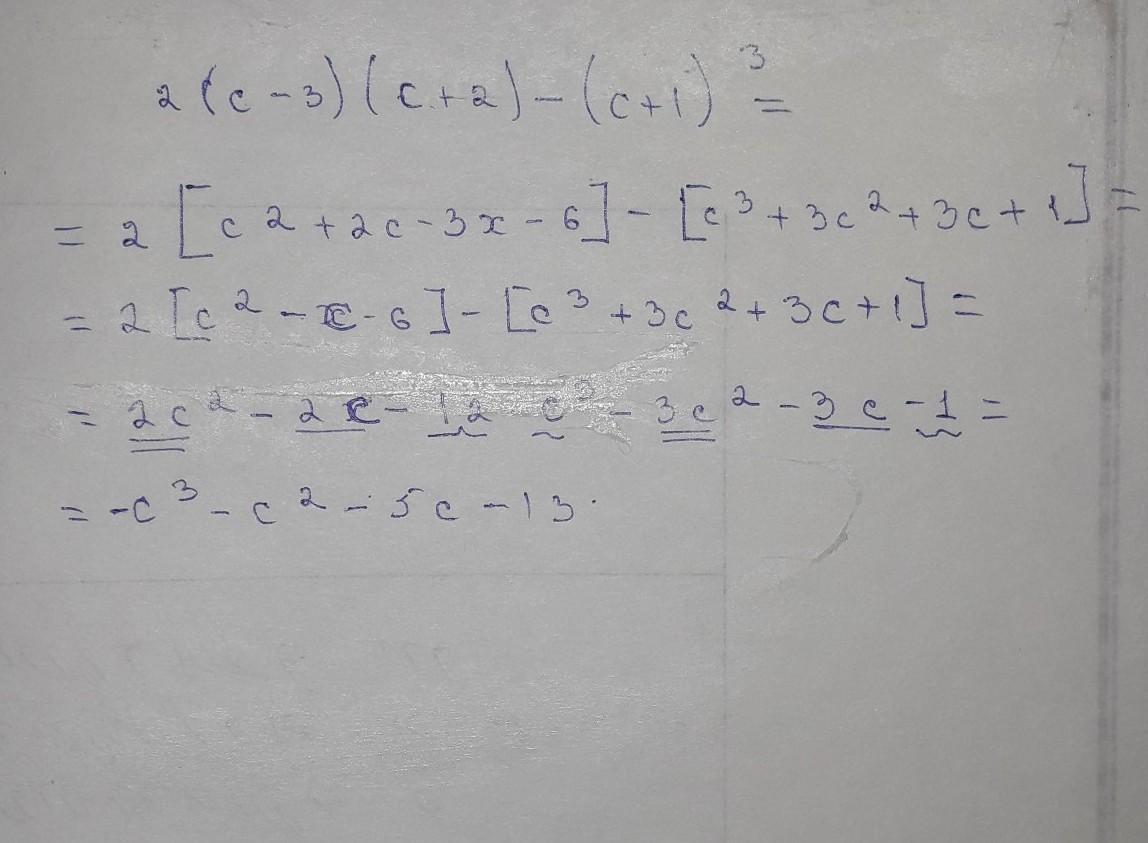 2(c-3)(c+2)-(c+1)³=
=2[c²+2c-3x-6]-[c³+3c²+3c+1]=
=2[c²-c-6]-[c³+3c²+3c+1]=
=2c²-2c-12 c³-3c²-3c-1=
=-c³-c²-5c-13.